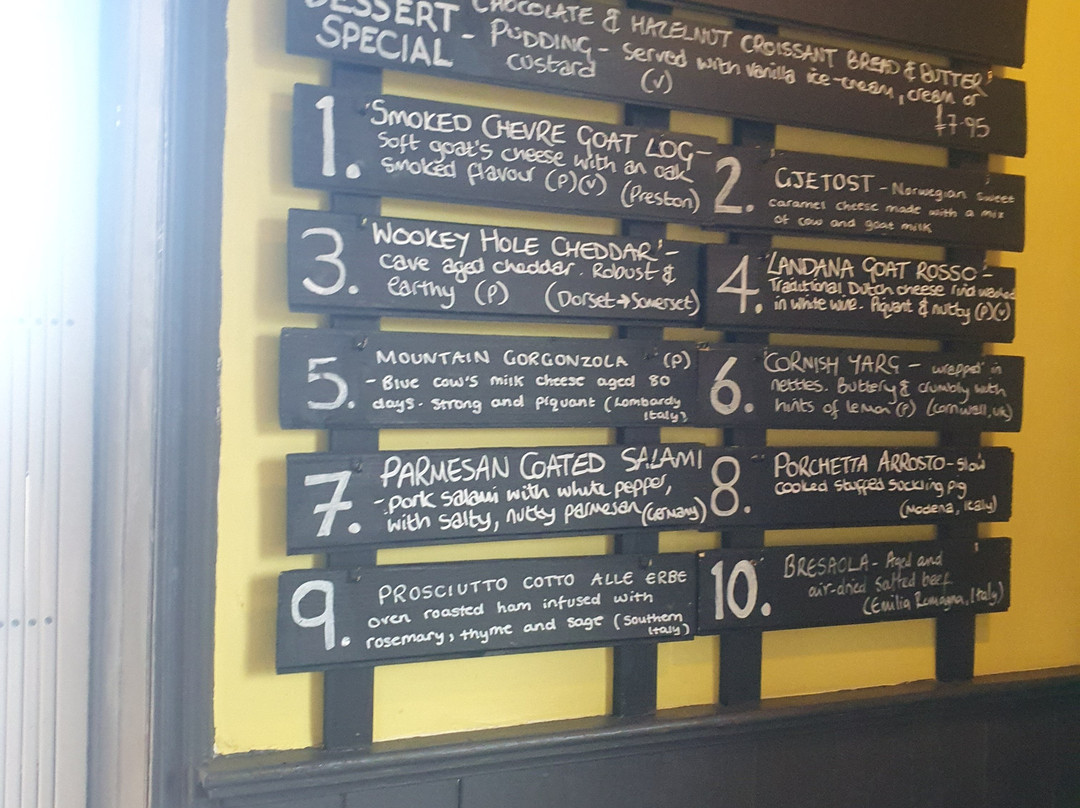 DESSERT
SPECIAL -
CHOCOLATE & HAZELNUT CROISSANT BREAD & BUTTER
PUDDING - Served with vanilla ice-cream, cream or
custard (v)
£7.95
1. 'SMOKED CHEVRE GOAT LOG -
Soft goat's cheese with an oak
smoked flavour (P)(V) (Preston)
2. GJETOST - Norwegian sweet
caramel cheese made with a mix
of cow and goat milk
3. 'WOOKEY HOLE CHEDDAR' -
cave aged cheddar. Robust &
earthy (P) (Dorset→Somerset)
4. 'LANDANA GOAT ROSSO -
Traditional Dutch cheese rind washed
in white wine. Piquant & nutty (P)(V)
5. MOUNTAIN GORGONZOLA (P)
- Blue cow's milk cheese aged 80
days. Strong and piquant (Lombardy
Italy)
6. CORNISH YARG - wrapped in
nettles. Buttery & crumbly with
hints of lemon (P) (Cornwall, UK)
7. PARMESAN COATED SALAMI
- pork salami with white pepper,
with salty, nutty parmesan (Germany)
8. PORCHETTA ARROSTO - slow
cooked stuffed suckling pig
(Modena, Italy)
9. PROSCIUTTO COTTO ALLE ERBE
oven roasted ham infused with
rosemary, thyme and sage (Southern
Italy)
10. BRESAOLA - Aged and
air-dried salted beef
(Emilia Romagna, Italy)